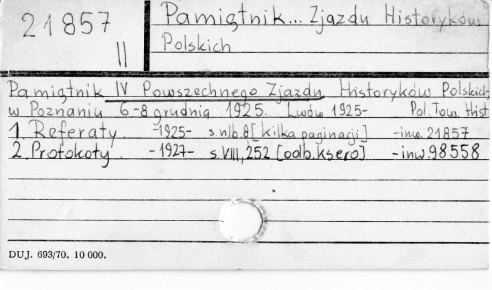 21857
II
Pamiętnik... Zjazdu Historyków
Polskich
Pamiętnik IV Powszechnego Zjazdu Historyków Polskich
w Poznaniu 6-8 grudnia 1925. Lwów 1925- Pol. Tow. Hist
1. Referaty -1925- s.nlb.8[kilka paginacji] -inw. 21857
2. Protokoły. -1927- s.VIII, 252 [odb. ksero] -inw. 98558
DUJ. 693/70. 10 000.